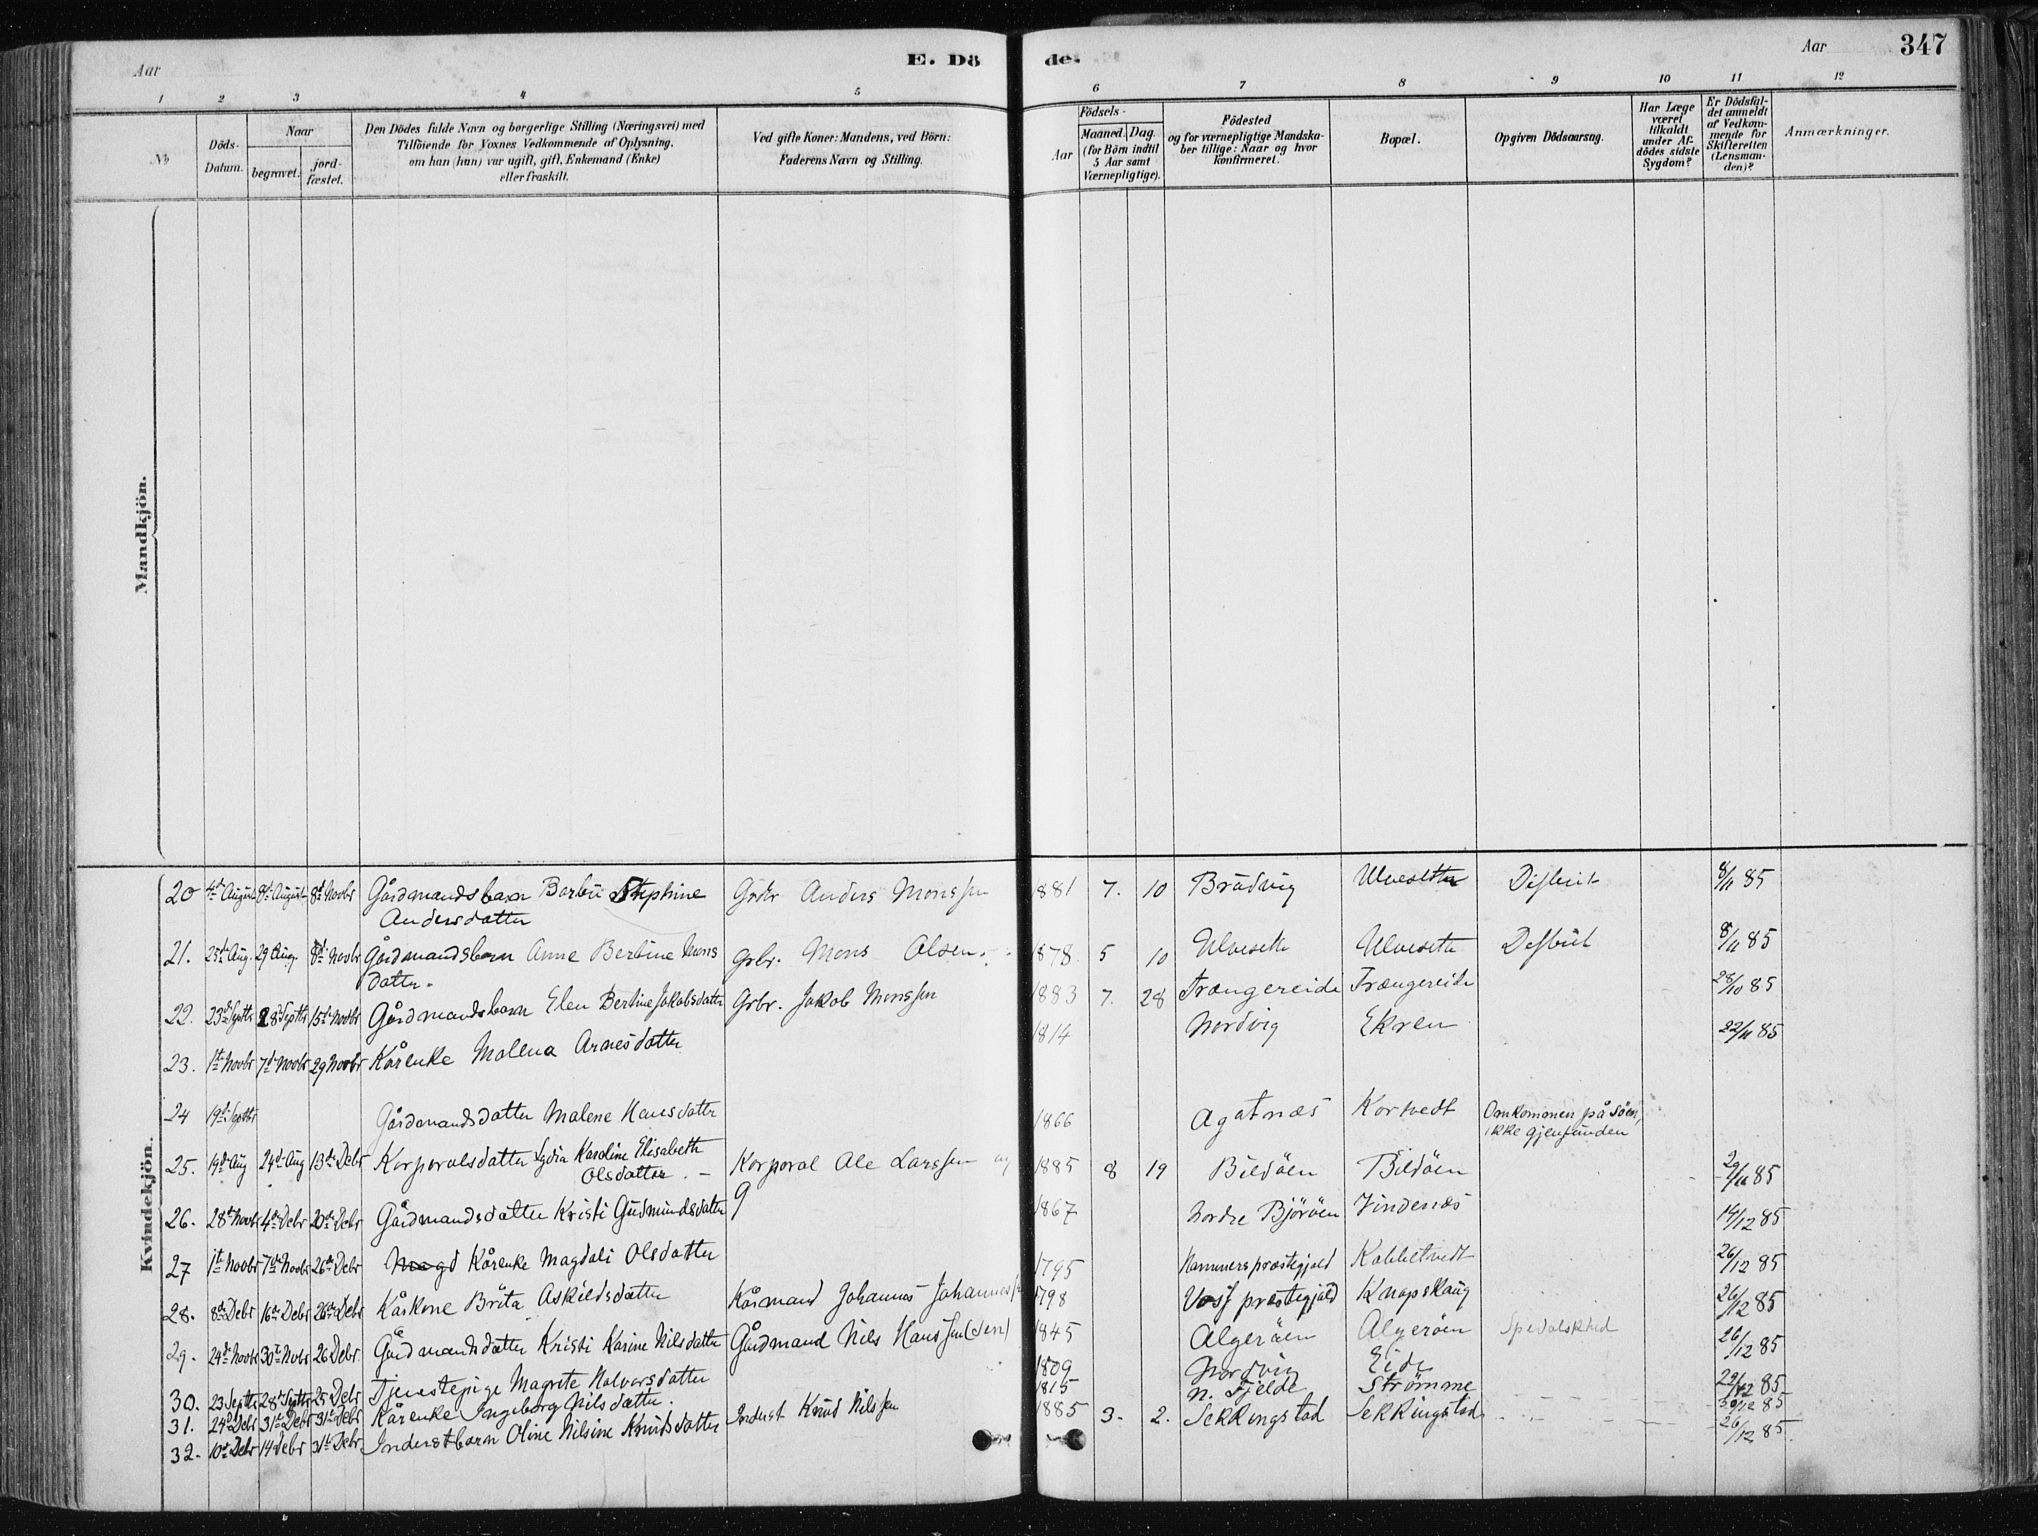 Aar E. Dö de. Aar 347
1 2 3 4 5 6 7 8 9 10 11 12
No
Döds-Datum.
Naar
begravet.
jord-fæstet.
Den Dödes fulde Navn og borgerlige Stilling (Næringsvei) med
Tilföiende for Voxnes Vedkommende af Oplysning,
om han (hun) var ugift, gift, Enkemand (Enke)
eller fraskilt.
Ved gifte Koner: Mandens, ved Börn:
Faderens Navn og Stilling.
Födsels-
Aar
Maaned. Dag.
(for Börn indtil
5 Aar samt
Værnepligtige).
Födested
og for værnepligtige Mandska-
ber tillige: Naar og hvor
konfirmeret.
Bopæl.
Opgiven Dödsaarsag.
Har Læge
været
tilkaldt
under Af-
dödes sidste
Sygdom?
Er Dödsfal-
det anmeldt
af Vedkom-
mende for
Skifteretten
(Lensman-
den)?
Anmærkninger.
Mandkjön.
Kvindekjön.
20 4de August 9de August 8de Novbr Gårdmandsbarn Barbru Stephine Grbr Anders Monssen 1881 7. 10 Brudvig Ulveseth Difterit 8/11 85
Andersdatter
21. 25de Aug. 29 Aug. 8de Novbr Gårdmandsbarn Anne Bertine Mons Grbr. Mons Olsen 1878 5 10 Ulveseth Ulveseth Difterit 8/11 85
datter.
22. 23de Septbr 28 Septbr 15de Novbr Gårdmandsbarn Elen Bertine Jakobsdatter Grbr. Jakob Monssen 1883 7. 28 Trængereide Trængereide 28/10 85
23. 1ste Novbr 7de Novbr 29 Novbr Kårenke Malena Arnesdatter 1814 Nordvig Ekren 22/11 85
24 19de Septbr Gårdmandsdatter Malene Hansdatter 1866 Agatnæs Kortvedt Omkommen på Søen,
ikke gjenfunden
25. 19de Aug 24de Aug 13de Debr Korporalsdatter Lydia Karoline Elisabeth Korporal Ole Larssen 1885 8 19 Bildöen Bildöen 29/11 85
Olsdatter. -
26. 28de Novbr 4de Debr 20de Debr Gårdmandsdatter Kristi Gudmundsdatter 1867 Nordre Björöen Vindenæs 14/12 85
27 1ste Novbr 7de Novbr 26de Debr Kårenke Magdali Olsdatter 1795 Hammers præstegjæld Kobbeltvedt 26/12 85
28. 8de Debr 16de Debr 26de Debr Kårkone Brita Askildsdatter Kårmand Johannes Johannessen 1798 Voss præstegjæld Knapskaug 26/12 85
29. 24de Novbr 30te Novbr 26 Debr. Gårdmandsdatter Kristi Karine Nilsdatter Gårdmand Nils Hanssen (sen) 1845 Algeröen Algeröen Spedalskhed 26/12 85
30. 23 Septbr 28de Septbr 25 Debr Tjenestepige Magrete Halvorsdatter 1809 Nordvig Eide 29/12 85
31. 24de Debr 31te Debr 31te Debr Kårenke Ingeborg Nilsdatter. 1815 N. Fjelde Strömme 30/12 85
32. 10de Debr 14 Debr 31te Debr. Inderstbarn Oline Nilsine Knudsdatter Inderst Knud Nilssen 1885 3. 2. Sekkingstad Sekkingstad 26/12 85